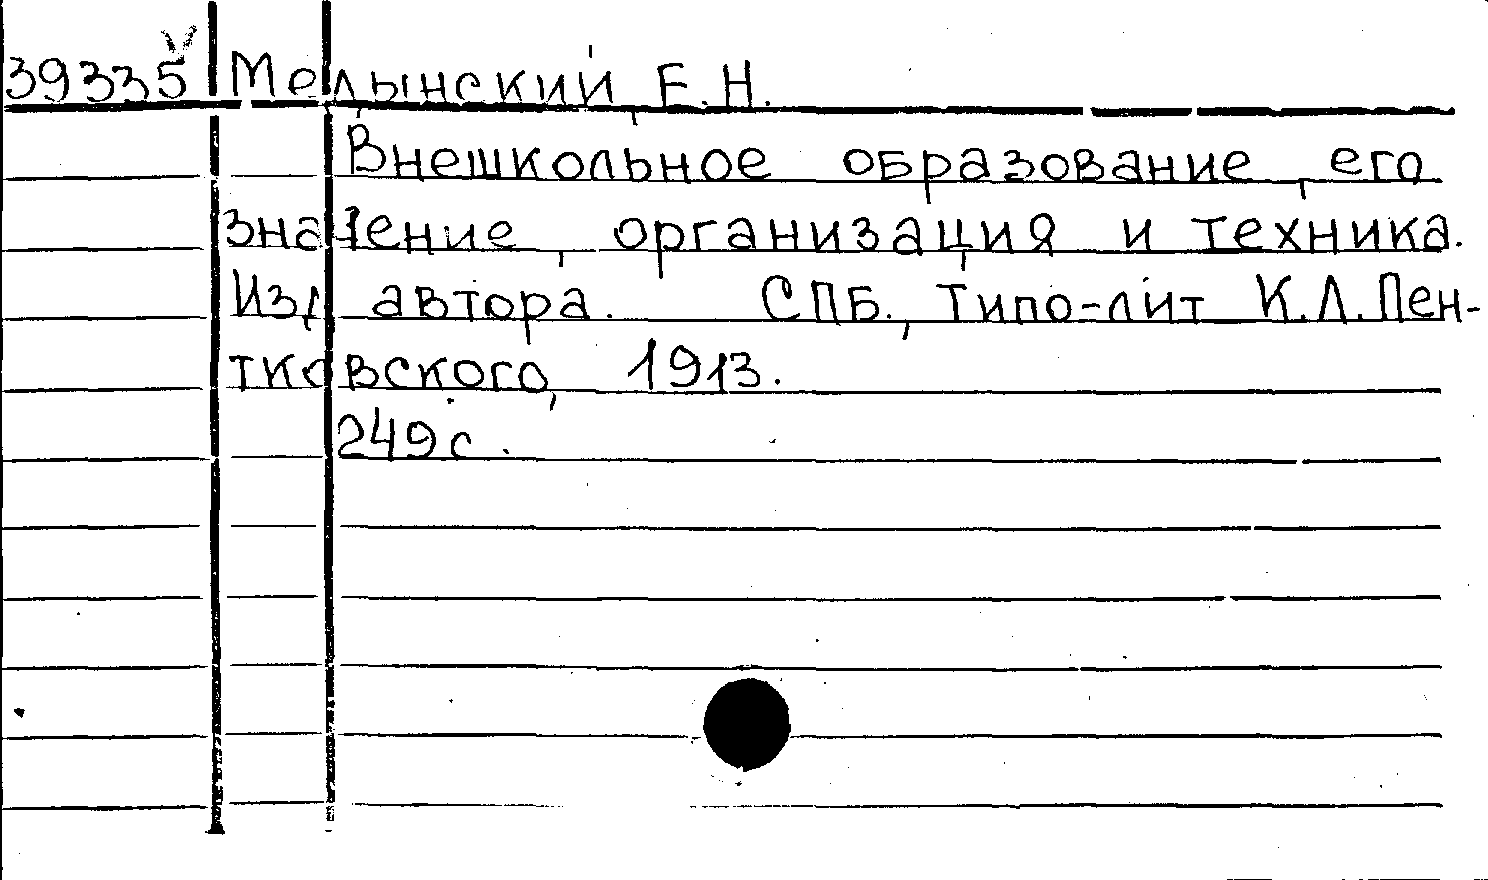 39335 Медынский, Е.Н.
Внешкольное образование, его
значение, организация и техника.
Изд автора. СПБ., Типо-лит К.Л.Пен-
тковского, 1913.
249с.